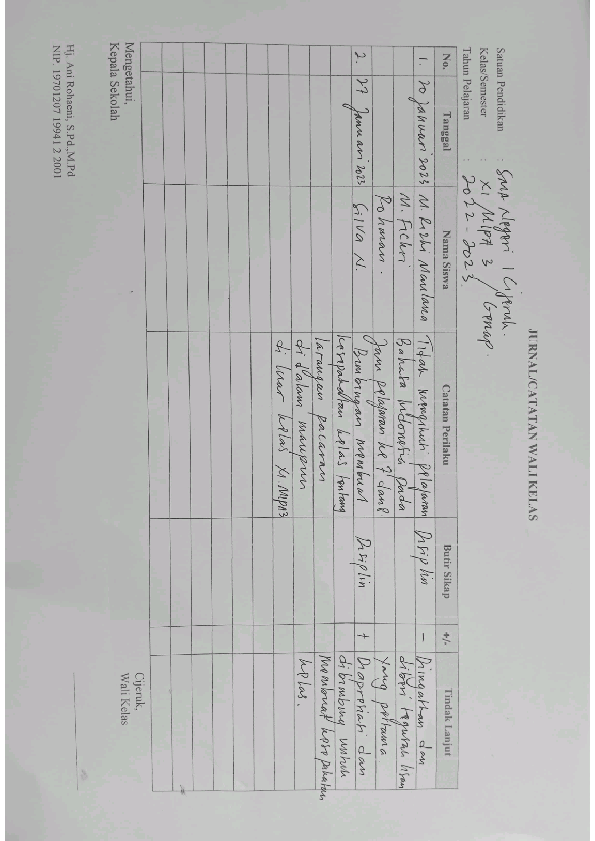 JURNAL/CATATAN WALI KELAS
Satuan Pendidikan : SMA Negeri 1 Cijeruk.
Kelas/Semester : XI MIPA 3 / Genap.
Tahun Pelajaran : 2022 - 2023
No. Tanggal Nama Siswa Catatan Perilaku Butir Sikap +/- Tindak Lanjut
1. 20 Januari 2023 M. Rizki Maulana Tidak mengikuti pelajaran Disiplin - Diingatkan dan
M. Fickri Bahasa Indonesia pada diberi teguran lisan
Rohman. Jam pelajaran ke 7 dan 8 yang pertama
2. 27 Januari 2023 Silva N. Bimbingan membuat Disiplin + Diapresiasi dan
kesepakatan kelas tentang dibimbing untuk
larangan pacaran membuat kesepakatan
di dalam maupun kelas.
di luar kelas XI MIPA3
Mengetahui,
Kepala Sekolah
Cijeruk,
Wali Kelas
Hj. Ani Rohaeni, S.Pd.,M.Pd
NIP. 19701207 199412 2 001